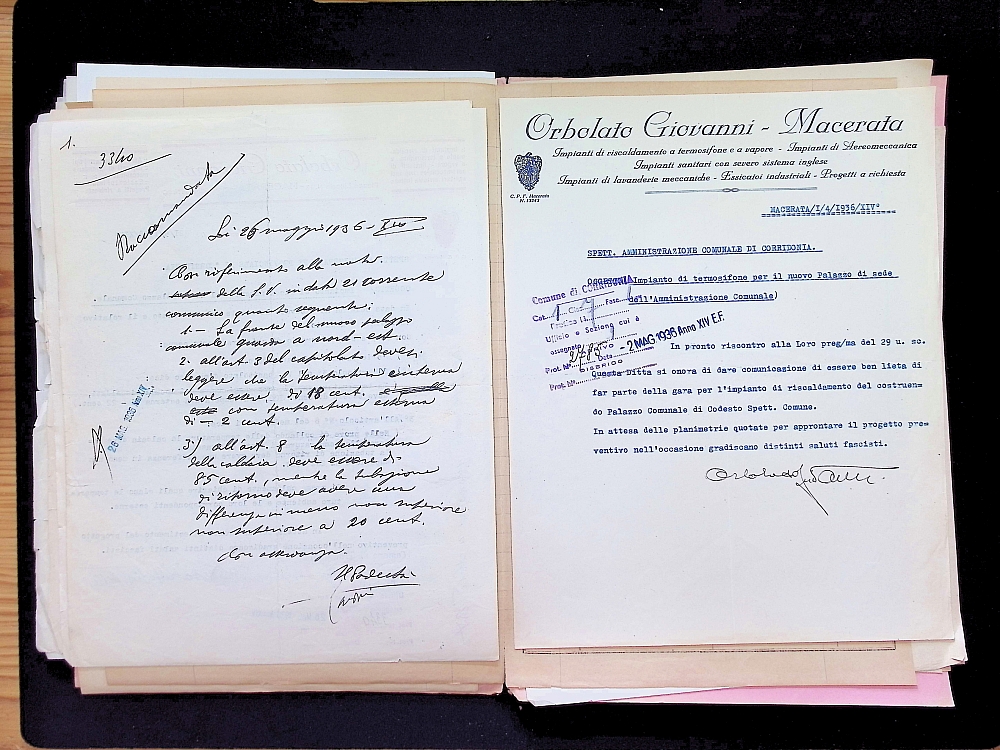 1.
3340
Raccomandata
Lì 26 maggio 1936 - XIV
Con riferimento alla nota
della S.V. in data 21 corrente
comunico quanto segue:
1. - La fronte del nuovo palazzo
comunale guarda a nord-est.
2. all'art. 3 del capitolato devesi
leggere che la temperatura interna
deve essere di 18 cent.
con temperatura esterna
di - 2 cent.
3°) all'art. 8 la temperatura
della caldaia deve essere di
85 cent., mentre la tubazione
di ritorno deve avere una
differenza in meno non superiore
non superiore a 20 cent.
Con osservanza.
Il Podestà
26 MAG. 1936 Anno XIV
Orbolato Giovanni - Macerata
Impianti di riscaldamento a termosifone e a vapore - Impianti di Aereomeccanica
Impianti sanitari con severo sistema inglese
Impianti di lavanderie meccaniche - Essicatoi industriali - Progetti a richiesta
C. P. F. Macerata
N. 13243
MACERATA/I/4/1936/XIV°
SPETT. AMMINISTRAZIONE COMUNALE DI CORRIDONIA.
OGGETTO(Impianto di termosifone per il nuovo Palazzo di sede
dell'Amministrazione Comunale)
Comune di CORRIDONIA
Cat. 1 Clas. 9 Fasc.
Ufficio e Sezione cui è
assegnato
Prot. N° 2785 Data -2 MAG. 1936 Anno XIV E.F.
Prot. N°
In pronto riscontro alla Loro preg/ma del 29 u. sc.
Questa Ditta si onora di dare comunicazione di essere ben lieta di
far parte della gara per l'impianto di riscaldamento del costruen=
do Palazzo Comunale di Codesto Spett. Comune.
In attesa delle planimetrie quotate per approntare il progetto pre=
ventivo nell'occasione gradiscano distinti saluti fascisti.
Orbolato Giovanni